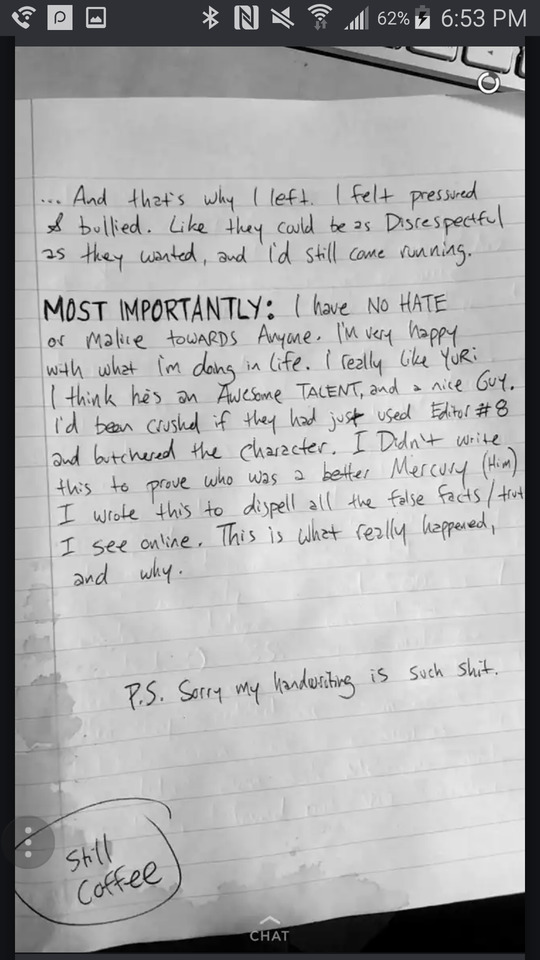 62% 6:53 PM
... And that's why I left. I felt pressured
& bullied. Like they could be as Disrespectful
as they wanted, and I'd still come running.
MOST IMPORTANTLY: I have NO HATE
or malice towards Anyone. I'm very happy
with what i'm doing in life. I really like YURi
I think he's an Awesome TALENT, and a nice Guy.
I'd been crushed if they had just used Editor #8
and butchered the character. I Didn't write
this to prove who was a better Mercury (Him)
I wrote this to dispell all the false facts/trut
I see online. This is what really happened,
and why.
P.S. Sorry my handwriting is such shit.
Still
Coffee
CHAT